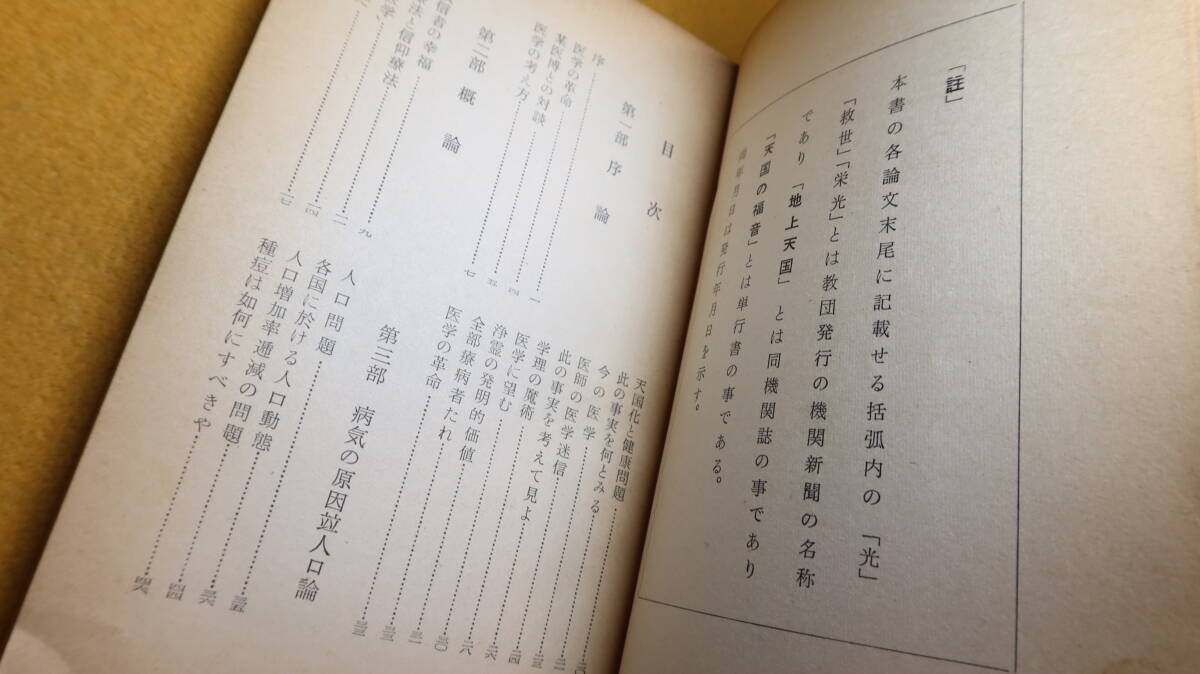 「註」
本書の各論文末尾に記載せる括弧内の「光」
「救世」「栄光」とは教団発行の機関新聞の名称
であり「地上天国」とは同機関誌の事であり
「天国の福音」とは単行書の事である。
尚年月日は発行年月日を示す。
目次
第一部 序論
序
医学の革命 一
某医博との対談 四
医学の考え方 五
七
第二部 概論
信者の幸福 九
療法と信仰療法 一一
一四
一七
天国化と健康問題 二〇
此の事実を何とみる
今の医学 二二
医師の医学迷信 二三
此の事実を考えて見よ 二四
学理の魔術 二六
医学に望む 二八
浄霊の発明的価値 三〇
全部療病者たれ 三一
医学の革命 三三
第三部 病気の原因並人口論
人口問題 三五
各国に於ける人口動態 三六
人口増加率逓減の問題 四四
種痘は如何にすべきや 四六